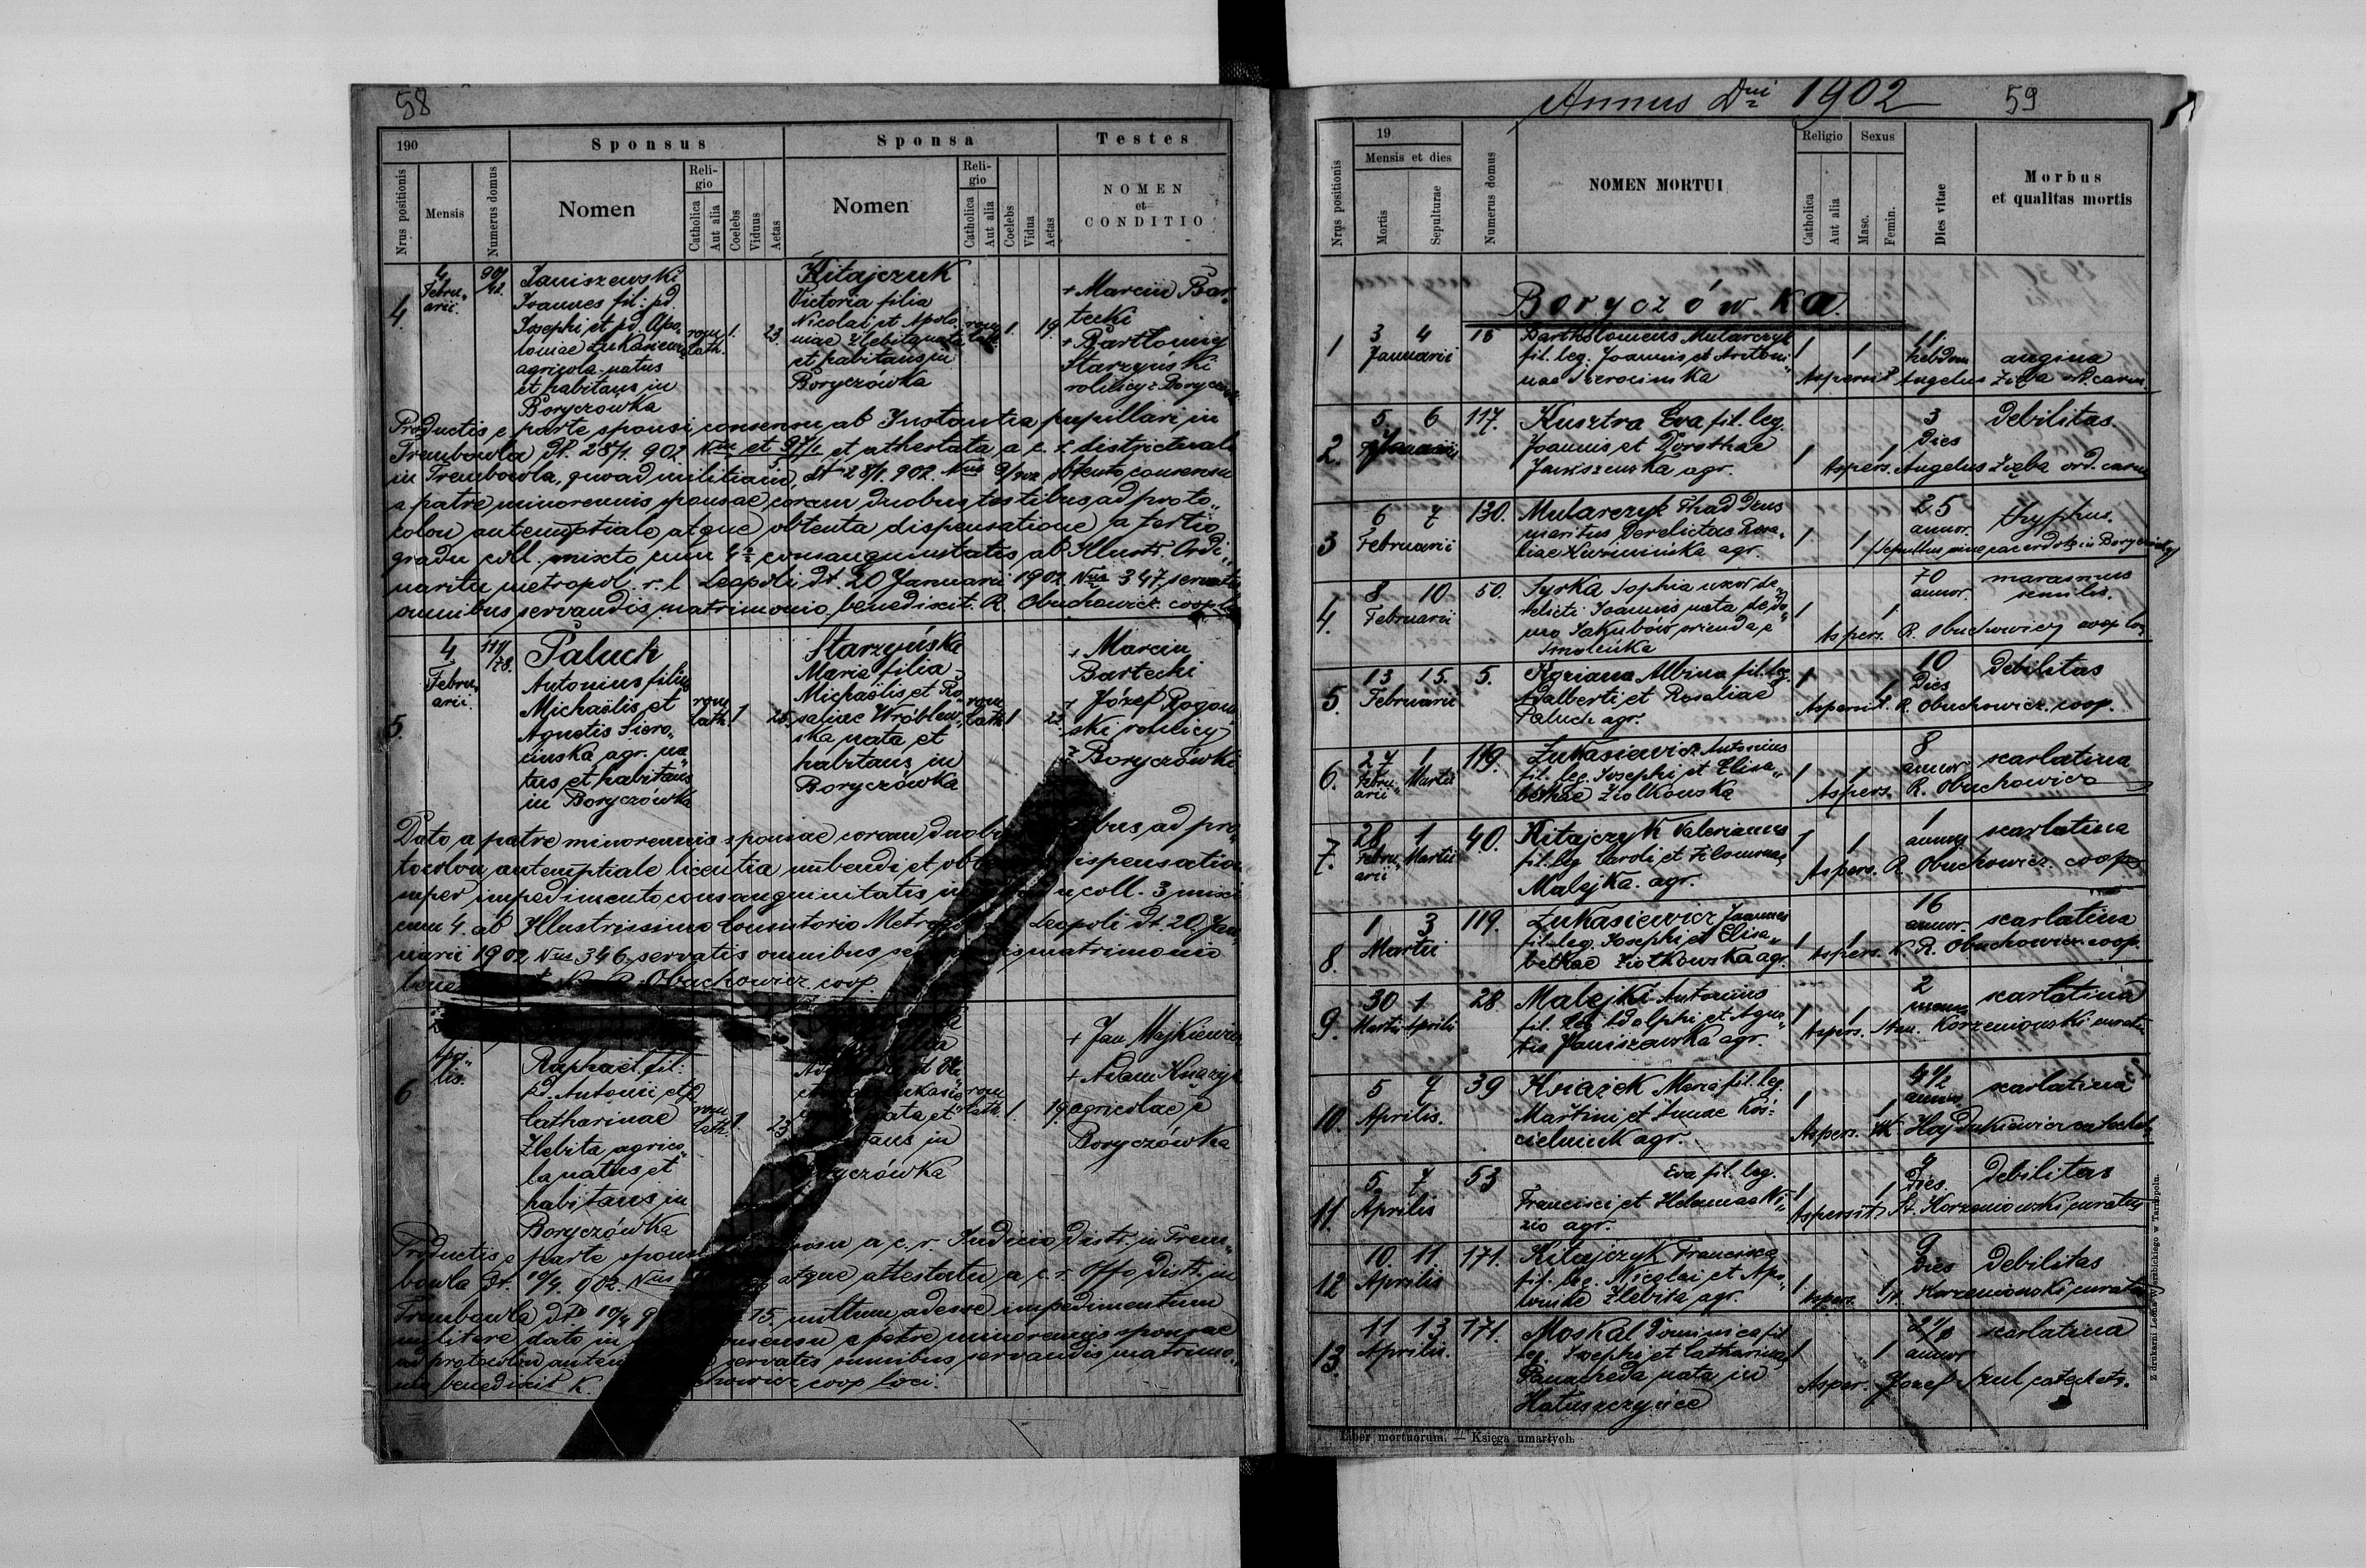 58
190
Sponsus
Sponsa
Testes
Nrus positionis
Mensis
Numerus domus
Nomen
Religio
Catholica
Aut alia
Coelebs
Viduus
Aetas
Nomen
Religio
Catholica
Aut alia
Coelebs
Vidua
Aetas
NOMEN
et
CONDITIO
4.
4
Febru„
arii.
90/
Janiszewski
Joannes fil: pd.
Josephi et pd. Apo„
loniae Łukasiewicz
agricola natus
et habitans in
Boryczówka
rom.
cath.
1.
23.
Kitajczuk
Victoria filia
Nicolai et Apolo„
niae Zlebita nata
et habitans in
Boryczówka
rom.
cath.
1.
19.
+ Marcin Bar„
tecki
+ Bartłomiej
Starzyński
rolnicy z Boryczówki
Productis e parte sponsi consensu ab Instantia pupillari in
Trembowla dt. 28/1. 902. Nus et 97/1 et attestata a c. r. districtuali
in Trembowla, quoad militiam, dt 28/1. 902. Nus 9/902 obtento consensu
a patre minorennis sponsae coram duobus testibus ad proto„
colon antenuptiale atque obtenta dispensatione a tertio
gradu coll. mixto cum 4o consanguinitatis ab Illustr. Ordi„
naritu metropol. r. l. Leopoli dt. 20 Januarii 1902 Nus 347, servatis
omnibus servandis matrimonio benedixit. R. Obuchowicz coop.
5.
4
Febru„
arii.
111/
78.
Paluch
Antonius filius
Michaëlis et
Agnetis Siero„
cinska agr. na„
tus et habitans
in Boryczówka
rom.
cath.
1
25.
Starzyńska
Maria filia
Michaëlis et Ro„
saliae Wróblew„
ska nata et
habitans in
Boryczówka
rom.
cath.
1
+ Marcin
Bartecki
+ Józef Rogow„
ski rolnicy
z Boryczówki
Dato a patre minorennis sponsae coram duobu bus ad pro„
tocolon antenuptiale licentia nubendi et obt dispensatio
super impedimento consanguinitatis in u coll. 3 mixti
cum 4. ab Illustrissimo Consistorio Metropo Leopoli dt. 20. Jan„
uarii 1902 Nus 346 servatis omnibus se is matrimonio
bene R. Obuchowicz coop.
6
Apri„
lis.
Raphael fil:
pd. Antonii et
Catharinae
Zlebita agrico„
la natus et
habitans in
Boryczówka
rom.
cath.
1
23
ata et
tans in
yczówka
rom.
cath.
1.
19.
+ Jan Majkiewicz
+ Adam Książek
agricolae e
Boryczówka
Productis e parte sponsi nsu a c. r. Judicio distr. in Trem„
bowla dt. 10/4 902. Nus atque attestatu a c. r. Offo distr. in
Trembowla dto 10/4 9 15. nullum adesse impedimentum
militare dato in onsensu a patre minorennis sponsae
ad protocolon anten servatis omnibus servandis matrimo„
nio benedixit R. chowicz coop loci.
Annus Dni 1902
59
Nrus positionis
19
Mensis et dies
Mortis
Sepulturae
Numerus domus
NOMEN MORTUI
Religio
Catholica
Aut alia
Sexus
Masc.
Femin.
Dies vitae
Morbus
et qualitas mortis
Boryczówka.
1
3 4
Januarii
Bartholomeus Mularczyk
fil. leg. Joannis et Antoni„
nae Sierocinska
1 1
11
hebdom
angina
Aspersit Angelus Zięba ord. carm.
2.
5. 6
Januarii
117.
Kusztra Eva fil. leg.
Joannis et Dorothae
Janiszewska agr.
1 1
3
Dies
Debilitas.
Aspers. Angelus Zięba ord. carm.
3
6 7
Februarii
130.
Mularczyk Thaddeus
maritus derelictus Rosa„
liae Kuzminska agr.
1 1
25
annor.
thyphus.
Sepultus sine sacerdote in Boryczówka
4.
8 10
Februarii
50.
Syrka Sophia uxor de„
relicti Joannis nata de do„
mo Jakubów
1 1
70
annor.
marasmus
senilis.
Aspers. R. Obuchowicz coop loci
5.
13 15.
Februarii
5.
Albina fil. leg.
Adalberti et Rosaliae
Paluch agr.
1 1
10
Dies
Debilitas
Aspersit R. Obuchowicz. coop.
6.
27 1
Febru„ Martii
arii
119.
Łukasiewicz Antonius
fil. leg. Josephi et Elisa„
bethae Ziolkowska
1 1
8
annor
scarlatina
Aspers. R. Obuchowicz
7.
28 1
Febru„ Martii
arii
40.
Kitajczyk Valerianus
fil. leg Caroli et Filomenae
Malejka. agr.
1 1
1
annus
scarlatina
Aspers. R Obuchowicz coop
8.
1 3
Martii
119.
Łukasiewicz Joannes
fil. leg. Josephi et Elisa„
bethae Ziolkowska agr.
1 1
16
annor.
scarlatina
Aspers. K. R. Obuchowicz coop.
9.
30 1
Martii Aprili
28
Malejki Antonius
fil. leg Adolphi et Agne„
tis Janiszewska agr.
1 1
2
scarlatina
Aspers. Stan. Korzeniowski curatus
10.
5 7
Aprilis.
39
Książek Maria fil. leg.
Martini et Annae Koś„
cielniuk agr.
1 1
4 1/2
annor
scarlatina
Aspers. W. Hajdukiewicz catechet.
11.
5 7
Aprilis
53
Eva fil. leg.
Francisci et Helenae Ni„
zio agr.
1 1
Dies.
Debilitas
Aspersit St. Korzeniowski curatus
12
10. 11
Aprilis
171.
Kitajczyk Francisca
fil. leg. Nicolai et Apo„
loniae Zlebita agr.
1 1
9
Dies
Debilitas
Aspers. St. Korzeniowski curatus
13.
11 13
Aprilis.
171.
Moskal Dominica fil
leg. Josephi et Catharinae
Panacheda nata in
Hatuszczyńce
1 1
annor
scarlatina
Asper. Jozef Szul catechets.
Liber mortuorum. — Księga umarłych.
Z drukarni Leona Wierzbickiego w Tarnopolu.